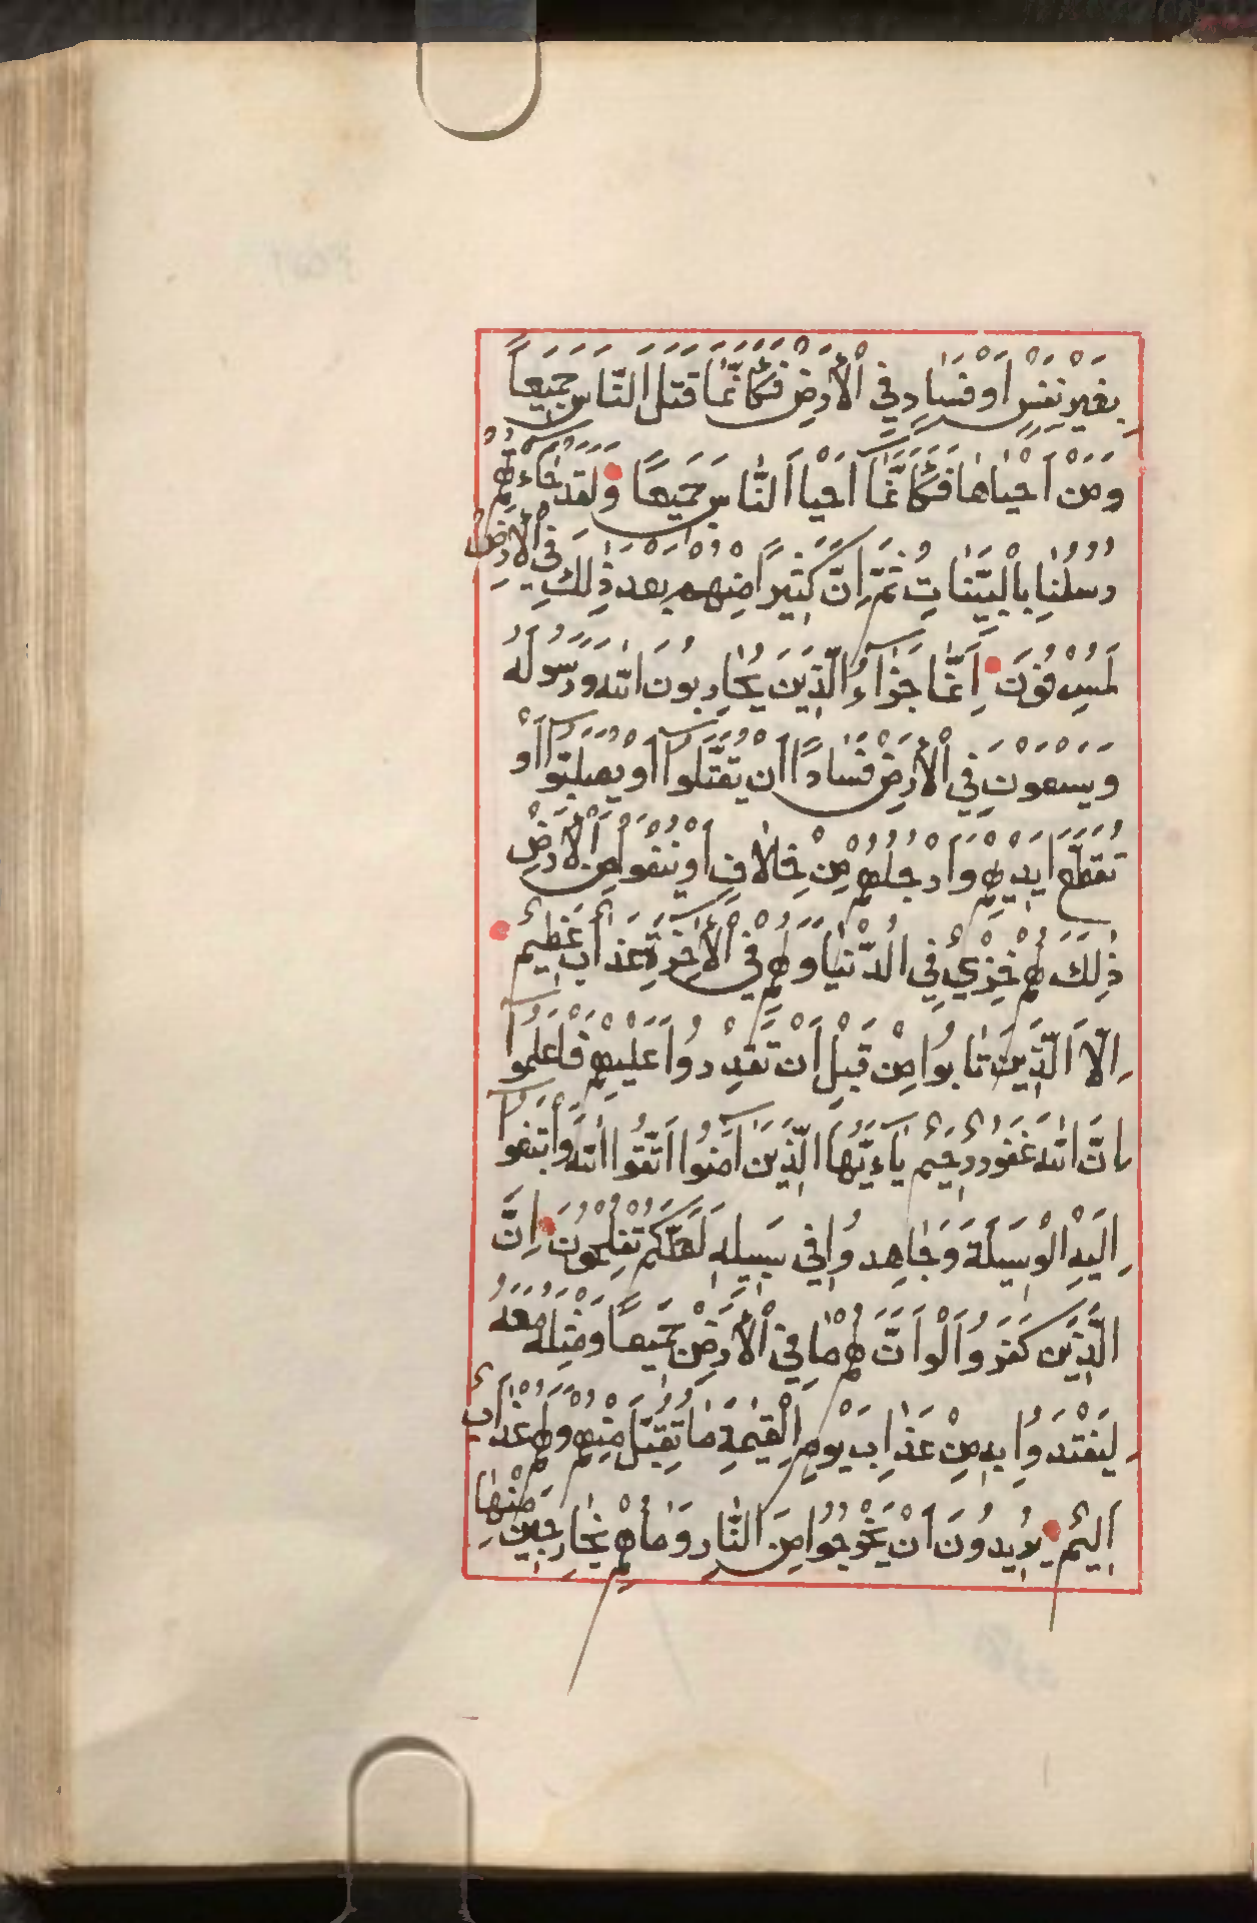 بِغَيْرِ نَفْسٍ اَوْ فَسَادٍ فِي الْأَرْضِ فَكَأَنَّمَا قَتَلَ النَّاسَ جَمِيعاً
وَمَنْ اَحْيَاهَا فَكَأَنَّمَا اَحْيَا النَّاسَ جَمِيعاً وَلَقَدْ جَاءَتْهُمْ
رُسُلُنَا بِالْبَيِّنَاتِ ثُمَّ اِنَّ كَثِيرًا مِنْهُمْ بَعْدَ ذٰلِكَ فِي الْأَرْضِ
لَمُسْرِفُونَ اِنَّمَا جَزَاءُ الَّذِينَ يُحَارِبُونَ اللّٰهَ وَرَسُولَهُ
وَيَسْعَوْنَ فِي الْأَرْضِ فَسَادًا اَنْ يُقَتَّلُوا اَوْ يُصَلَّبُوا اَوْ
تُقَطَّعَ اَيْدِيهِمْ وَاَرْجُلُهُمْ مِنْ خِلَافٍ اَوْ يُنْفَوْا مِنَ الْأَرْضِ
ذٰلِكَ لَهُمْ خِزْيٌ فِي الدُّنْيَا وَلَهُمْ فِي الْأَخِرَةِ عَذَابٌ عَظِيمٌ
اِلَّا الَّذِينَ تَابُوا مِنْ قَبْلِ اَنْ تَقْدِرُوا عَلَيْهِمْ فَاعْلَمُوا
اَنَّ اللّٰهَ غَفُورٌ رَحِيمٌ يَاءَيُّهَا الَّذِينَ اٰمَنُوا اتَّقُوا اللّٰهَ وَابْتَغُوا
اِلَيْهِ الْوَسِيلَةَ وَجَاهِدُوا فِي سَبِيلِهِ لَعَلَّكُمْ تُفْلِحُونَ اِنَّ
الَّذِينَ كَفَرُوا لَوْ اَنَّ لَهُمْ مَا فِي الْأَرْضِ جَمِيعاً وَمِثْلَهُ مَعَهُ
لِيَفْتَدُوا بِهِ مِنْ عَذَابِ يَوْمِ الْقِيٰمَةِ مَا تُقُبِّلَ مِنْهُمْ وَلَهُمْ عَذَابٌ
اَلِيمٌ يُرِيدُونَ اَنْ يَخْرُجُوا مِنَ النَّارِ وَمَا هُمْ بِخَارِجِينَ مِنْهَا